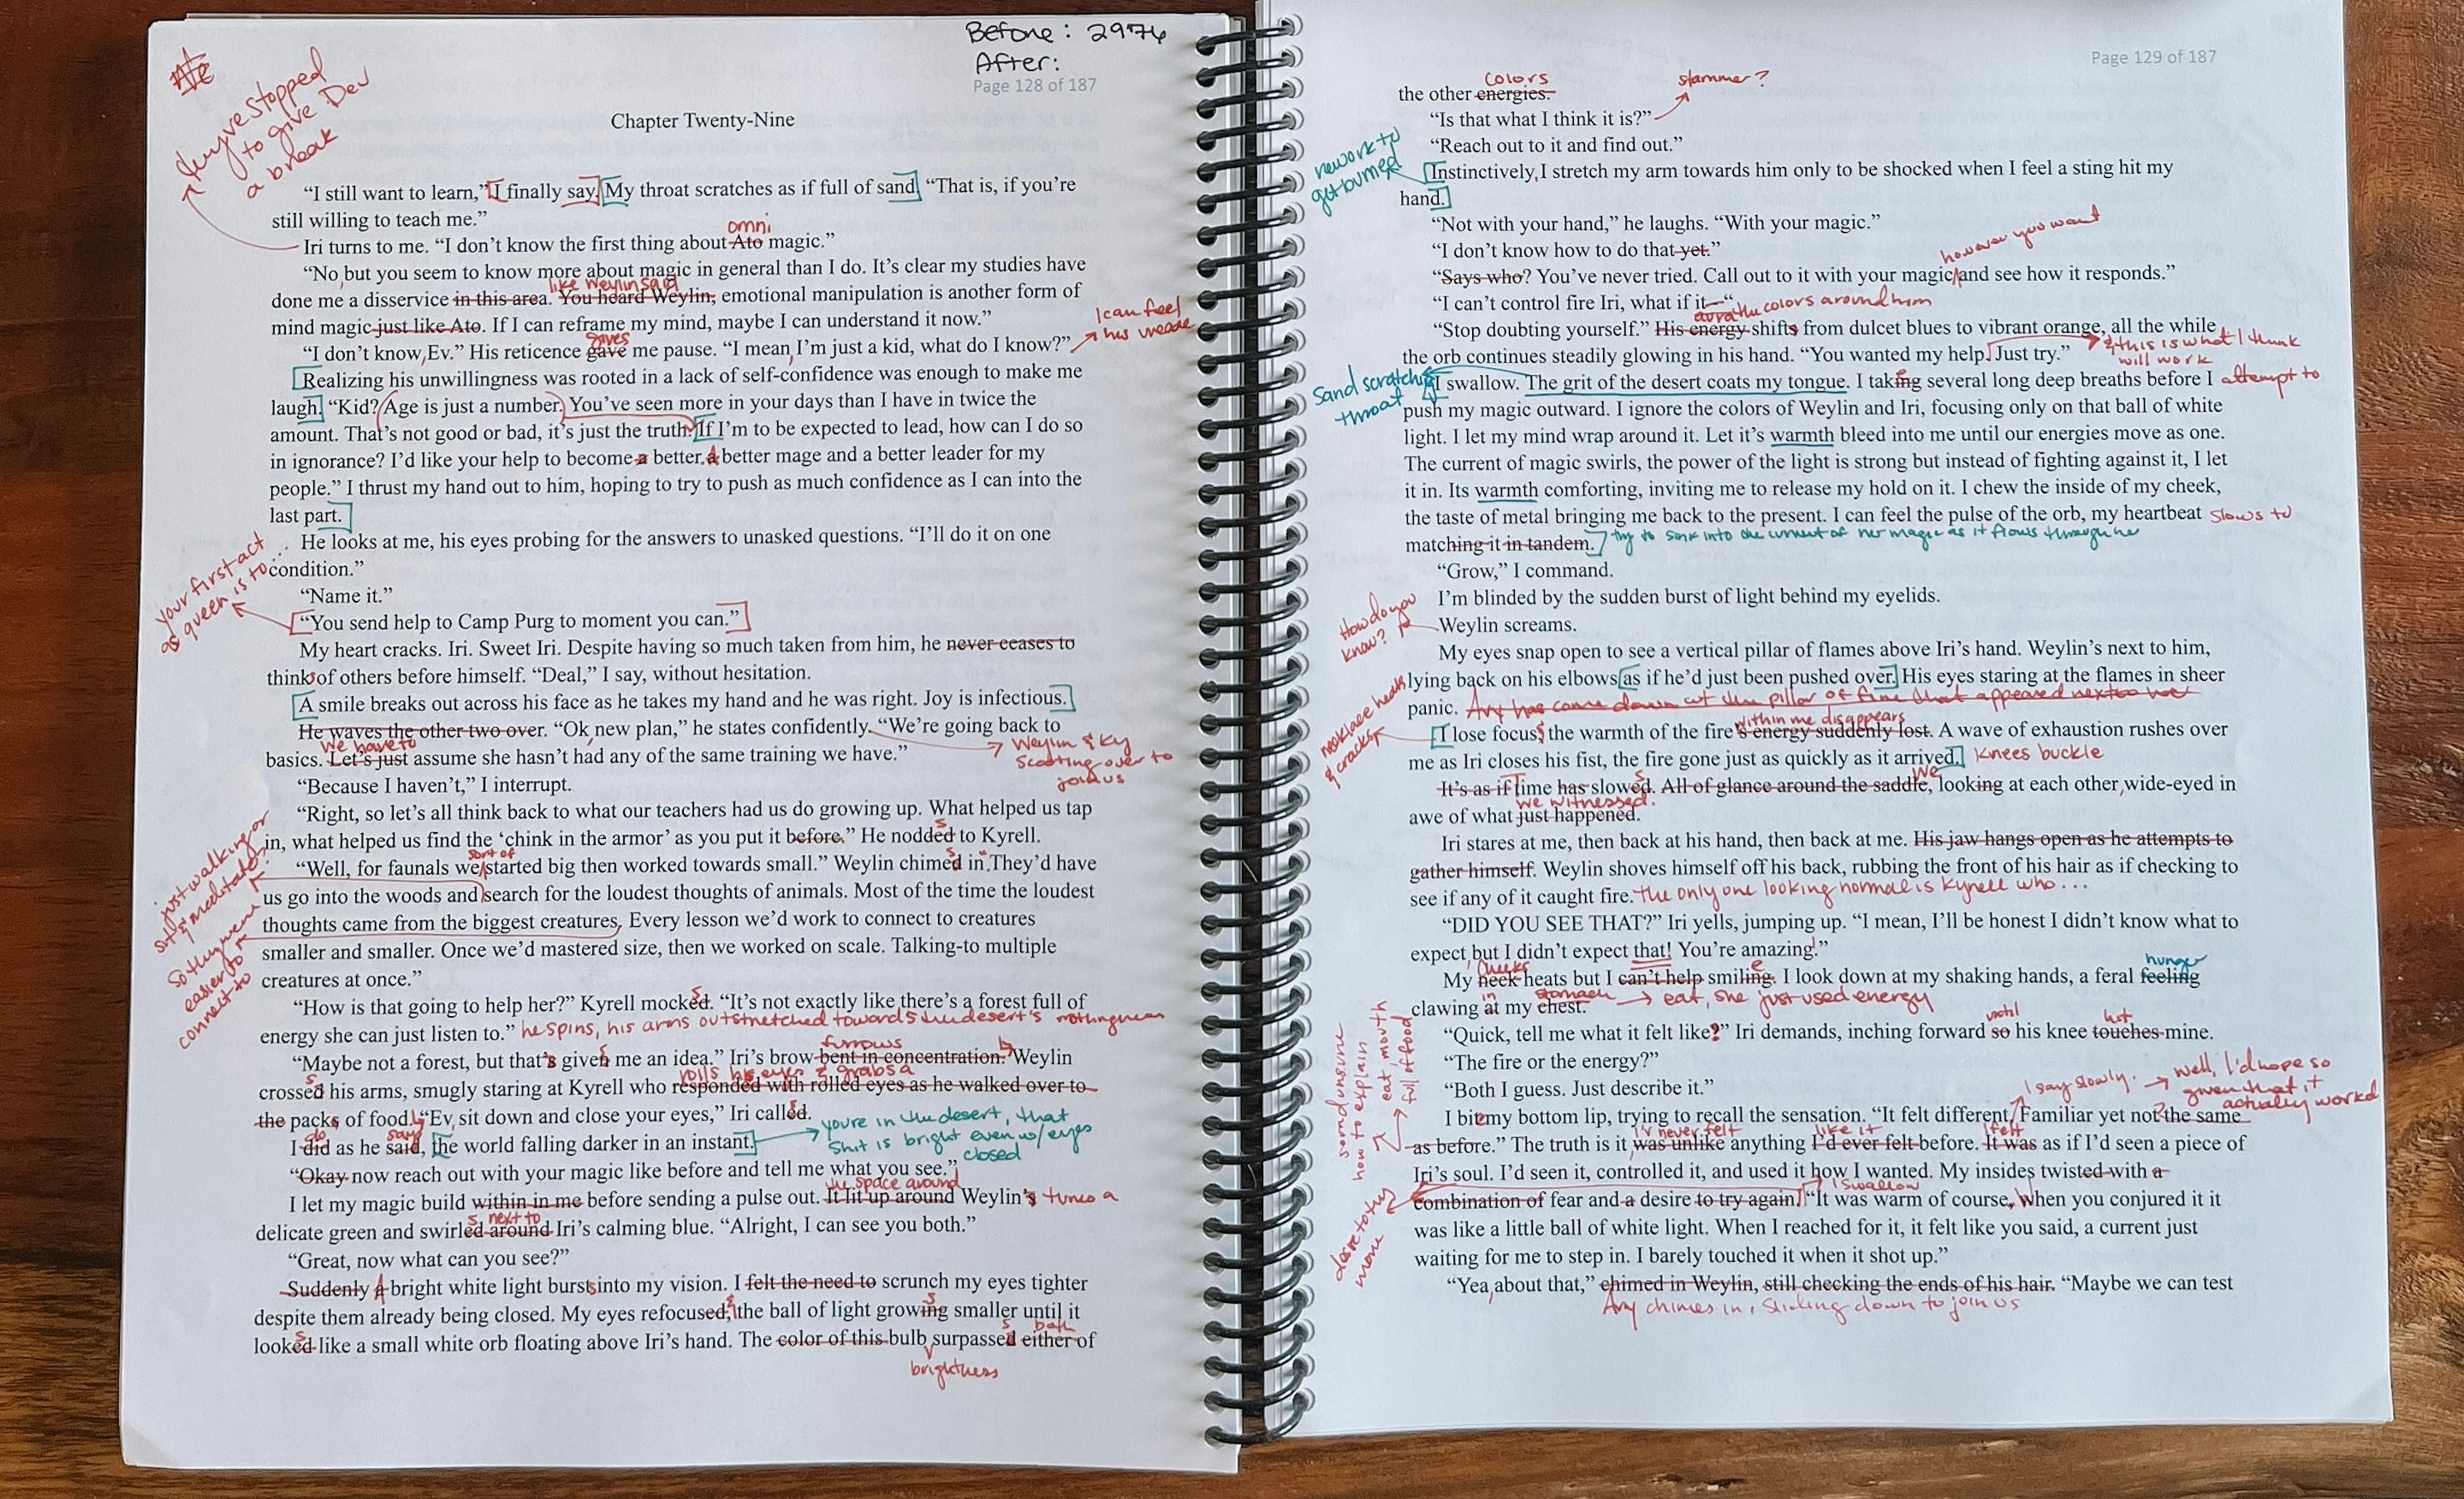 Before: 2974
After:
Page 128 of 187
they've stopped
to give Dev
a break
Chapter Twenty-Nine
“I still want to learn,” I finally say. My throat scratches as if full of sand. “That is, if you’re
still willing to teach me.”
omni
Iri turns to me. “I don’t know the first thing about Ato magic.”
“No, but you seem to know more about magic in general than I do. It’s clear my studies have
like Weylin said
done me a disservice in this area. You heard Weylin, emotional manipulation is another form of
mind magic just like Ato. If I can reframe my mind, maybe I can understand it now.”
I can feel
his
gives
“I don’t know, Ev.” His reticence gave me pause. “I mean, I’m just a kid, what do I know?”
Realizing his unwillingness was rooted in a lack of self-confidence was enough to make me
laugh. “Kid? Age is just a number. You’ve seen more in your days than I have in twice the
amount. That’s not good or bad, it’s just the truth. If I’m to be expected to lead, how can I do so
in ignorance? I’d like your help to become a better. A better mage and a better leader for my
people.” I thrust my hand out to him, hoping to try to push as much confidence as I can into the
last part.
He looks at me, his eyes probing for the answers to unasked questions. “I’ll do it on one
condition.”
your first act
as queen is to...
“Name it.”
“You send help to Camp Purg to moment you can.”
My heart cracks. Iri. Sweet Iri. Despite having so much taken from him, he never ceases to
thinks of others before himself. “Deal,” I say, without hesitation.
A smile breaks out across his face as he takes my hand and he was right. Joy is infectious.
He waves the other two over. “Ok, new plan,” he states confidently. “We’re going back to
we have to
basics. Let’s just assume she hasn’t had any of the same training we have.”
Weylin & Ky
scooting over to
join us
“Because I haven’t,” I interrupt.
“Right, so let’s all think back to what our teachers had us do growing up. What helped us tap
in, what helped us find the ‘chink in the armor’ as you put it before.” He nodded to Kyrell.
just walking or
sit & meditate?
sort of
“Well, for faunals we started big then worked towards small.” Weylin chimed in. “They’d have
us go into the woods and search for the loudest thoughts of animals. Most of the time the loudest
thoughts came from the biggest creatures. Every lesson we’d work to connect to creatures
smaller and smaller. Once we’d mastered size, then we worked on scale. Talking-to multiple
creatures at once.”
so they were
easier to
connect to
“How is that going to help her?” Kyrell mocked. “It’s not exactly like there’s a forest full of
energy she can just listen to.” he spins, his arms outstretched towards the desert's nothingness
furrows
“Maybe not a forest, but that’s given me an idea.” Iri’s brow bent in concentration. Weylin
rolls his eyes & grabs a
crossed his arms, smugly staring at Kyrell who responded with rolled eyes as he walked over to
the packs of food. “Ev, sit down and close your eyes,” Iri called.
do says
I did as he said, the world falling darker in an instant.
youre in the desert, that
shit is bright even w/ eyes
closed
“Okay now reach out with your magic like before and tell me what you see.”
the space around
I let my magic build within in me before sending a pulse out. It lit up around Weylin’s turns a
next to
delicate green and swirled around Iri’s calming blue. “Alright, I can see you both.”
“Great, now what can you see?”
Suddenly A bright white light bursts into my vision. I felt the need to scrunch my eyes tighter
despite them already being closed. My eyes refocused, the ball of light growing smaller until it
both
looked like a small white orb floating above Iri’s hand. The color of this bulb surpassed either of
brightness
Page 129 of 187
colors
the other energies.
stammer?
“Is that what I think it is?”
“Reach out to it and find out.”
rework to
get burned
Instinctively, I stretch my arm towards him only to be shocked when I feel a sting hit my
hand.
“Not with your hand,” he laughs. “With your magic.”
“I don’t know how to do that yet.”
however you want
“Says who? You’ve never tried. Call out to it with your magic and see how it responds.”
“I can’t control fire Iri, what if it—“
the colors around him
“Stop doubting yourself.” His energy shifts from dulcet blues to vibrant orange, all the while
the orb continues steadily glowing in his hand. “You wanted my help. Just try.”
& this is what I think
will work
Sand scratching
throat
I swallow. The grit of the desert coats my tongue. I taking several long deep breaths before I attempt to
push my magic outward. I ignore the colors of Weylin and Iri, focusing only on that ball of white
light. I let my mind wrap around it. Let it’s warmth bleed into me until our energies move as one.
The current of magic swirls, the power of the light is strong but instead of fighting against it, I let
it in. Its warmth comforting, inviting me to release my hold on it. I chew the inside of my cheek,
the taste of metal bringing me back to the present. I can feel the pulse of the orb, my heartbeat slows to
matching it in tandem. try to sink into the current of her magic as it flows through her
“Grow,” I command.
I’m blinded by the sudden burst of light behind my eyelids.
How do you
know?
Weylin screams.
My eyes snap open to see a vertical pillar of flames above Iri’s hand. Weylin’s next to him,
lying back on his elbows as if he’d just been pushed over. His eyes staring at the flames in sheer
panic. Any has come down at the pillar of fire that appeared next to her
necklace heats
& cracks
within me disappears
I lose focus, the warmth of the fire’s energy suddenly lost. A wave of exhaustion rushes over
me as Iri closes his fist, the fire gone just as quickly as it arrived. Knees buckle
We
It’s as if Time has slowed. All of glance around the saddle, looking at each other, wide-eyed in
we witnessed.
awe of what just happened.
Iri stares at me, then back at his hand, then back at me. His jaw hangs open as he attempts to
gather himself. Weylin shoves himself off his back, rubbing the front of his hair as if checking to
see if any of it caught fire. the only one looking normal is Kyrell who...
“DID YOU SEE THAT?” Iri yells, jumping up. “I mean, I’ll be honest I didn’t know what to
expect but I didn’t expect that! You’re amazing!”
cheeks hunger
My neck heats but I can’t help smiling. I look down at my shaking hands, a feral feeling
in stomach
clawing at my chest. eat, she just used energy
until hot
“Quick, tell me what it felt like?” Iri demands, inching forward so his knee touches mine.
“The fire or the energy?”
“Both I guess. Just describe it.”
I say slowly.
well, I'd hope so
given that it
actually worked
eat mouth
full of food
how to explain
I bite my bottom lip, trying to recall the sensation. “It felt different. Familiar yet not the same
I've never felt like it felt
as before.” The truth is it was unlike anything I’d ever felt before. It was as if I’d seen a piece of
Iri’s soul. I’d seen it, controlled it, and used it how I wanted. My insides twisted with a
I swallow
combination of fear and a desire to try again. “It was warm of course, when you conjured it it
desire to try
more
was like a little ball of white light. When I reached for it, it felt like you said, a current just
waiting for me to step in. I barely touched it when it shot up.”
“Yea, about that,” chimed in Weylin, still checking the ends of his hair. “Maybe we can test
Any chimes in, sliding down to join us